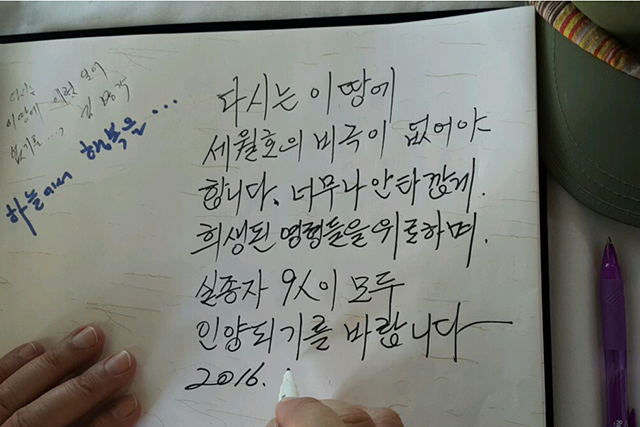 다시는 이 땅에
세월호의 비극이 없어야
합니다. 너무나 안타깝게
희생된 영령들을 위로하며.
실종자 9人이 모두
인양되기를 바랍니다
2016.
이 땅에 이런 일이
없기를....
하늘에서 행복을...